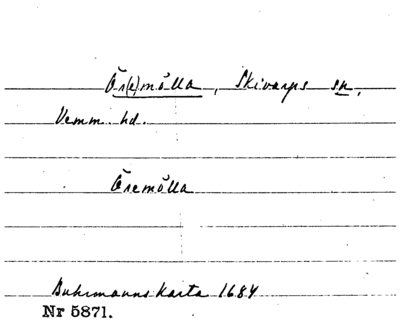 Ör(e)mölla, Skivarps sn,
Vemm. hd.
Öremölla
Buhrmanns Karta 1684
Nr 5871.